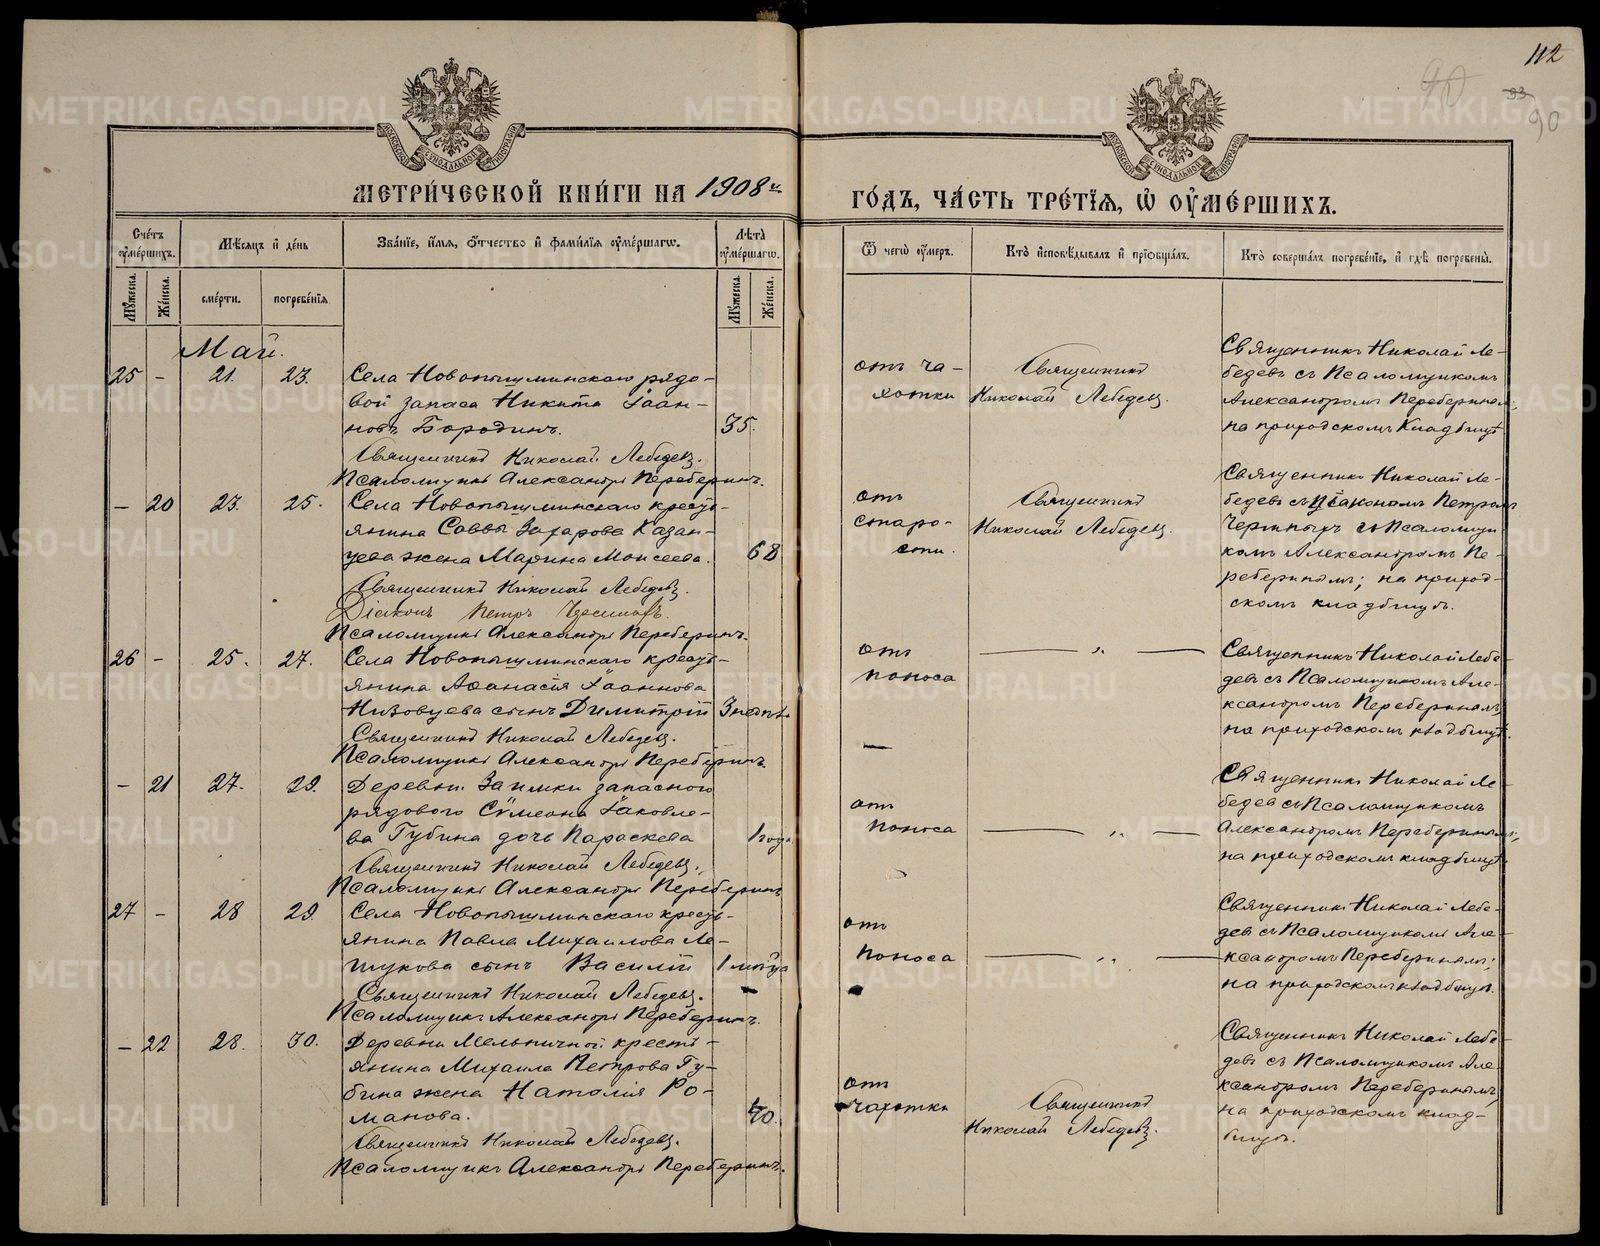 112
90
93
90
МЕТРИ́ЧЕСКОЙ КНИ́ГИ НА 1908 й
ГО́ДЪ, ЧА́СТЬ ТРЕ́ТЇѦ, Ѡ҆ ОУ҆МЕ́РШИХЪ.
Сче́тъ оу҆ме́ршихъ.
Мѣ́сѧцъ и҆ де́нь
Зва́нїе, и҆́мѧ, ѻ҆́тчество и҆ фамй́лїѧ оу҆ме́ршагѡ.
Лѣ́та оу҆ме́ршагѡ.
Ѿ чегѡ̀ оу҆́меръ.
Кто̀ и҆сповѣ́дывалъ и҆ прїѡбща́лъ.
Кто̀ соверша́лъ погребе́нїе, и҆ гдѣ̀ погребены̀.
Мꙋ́жеска.
Же́нска.
сме́рти.
погребе́нїѧ
Мꙋ́жеска.
Же́нска.
Май.
25 - 21. 23. Села Новопышминскаго рядо-
вой запаса Никита Іоан-
новъ Бородинъ. 35.
Священникъ Николай Лебедевъ.
Псаломщикъ Александръ Переберинъ.
отъ ча-
хотки
Священникъ
Николай Лебедевъ.
Священникъ Николай Ле-
бедевъ съ Псаломщикомъ
Александромъ Переберинымъ;
на приходскомъ кладбищѣ
- 20 23. 25. Села Новопышминскаго кресть-
янина Саввы Захарова Казан-
цева жена Марина Моисеева. 68
Священникъ Николай Лебедевъ.
Діаконъ Петръ
Псаломщикъ Александръ Переберинъ.
отъ
старо-
сти.
Священникъ
Николай Лебедевъ.
Священникъ Николай Ле-
бедевъ съ Діакономъ Петромъ
и Псаломщи-
комъ Александромъ Пе-
реберинымъ; на приход-
скомъ кладбищѣ.
26 - 25. 27. Села Новопышминскаго кресть-
янина Аѳанасія Іоаннова
Низовцева сынъ Димитрій 3 недѣль
Священникъ Николай Лебедевъ.
Псаломщикъ Александръ Переберинъ.
отъ
поноса
— „ —
Священникъ Николай Лебе-
девъ съ Псаломщикомъ Але-
ксандромъ Переберинымъ,
на приходскомъ кладбищѣ.
- 21 27. 29. Деревни Заимки запаснаго
рядового Сѵмеона Іаковле-
ва Губина дочь Параскева 1 года
Священникъ Николай Лебедевъ.
Псаломщикъ Александръ Переберинъ
отъ
поноса
— „ —
Священникъ Николай Ле-
бедевъ съ Псаломщикомъ
Александромъ Переберинымъ;
на приходскомъ кладбищѣ.
27 - 28 29. Села Новопышминскаго кресть-
янина Павла Михаилова Ле-
щукова сынъ Василій 1 мѣсяца
Священникъ Николай Лебедевъ.
Псаломщикъ Александръ Переберинъ.
отъ
поноса
— „ —
Священникъ Николай Лебе-
девъ съ Псаломщикомъ Але-
ксандромъ Переберинымъ;
на приходскомъ кладбищѣ.
- 22 28. 30. Деревни Мельничной кресть-
янина Михаила Петрова Гу-
бина жена Наталія Ро-
манова. 40.
Священникъ Николай Лебедевъ.
Псаломщикъ Александръ Переберинъ.
отъ
чахотки
Священникъ
Николай Лебедевъ.
Священникъ Николай Лебе-
девъ съ Псаломщикомъ Але-
ксандромъ Переберинымъ
на приходскомъ клад-
бищѣ.
METRIKI.GASO-URAL.RU